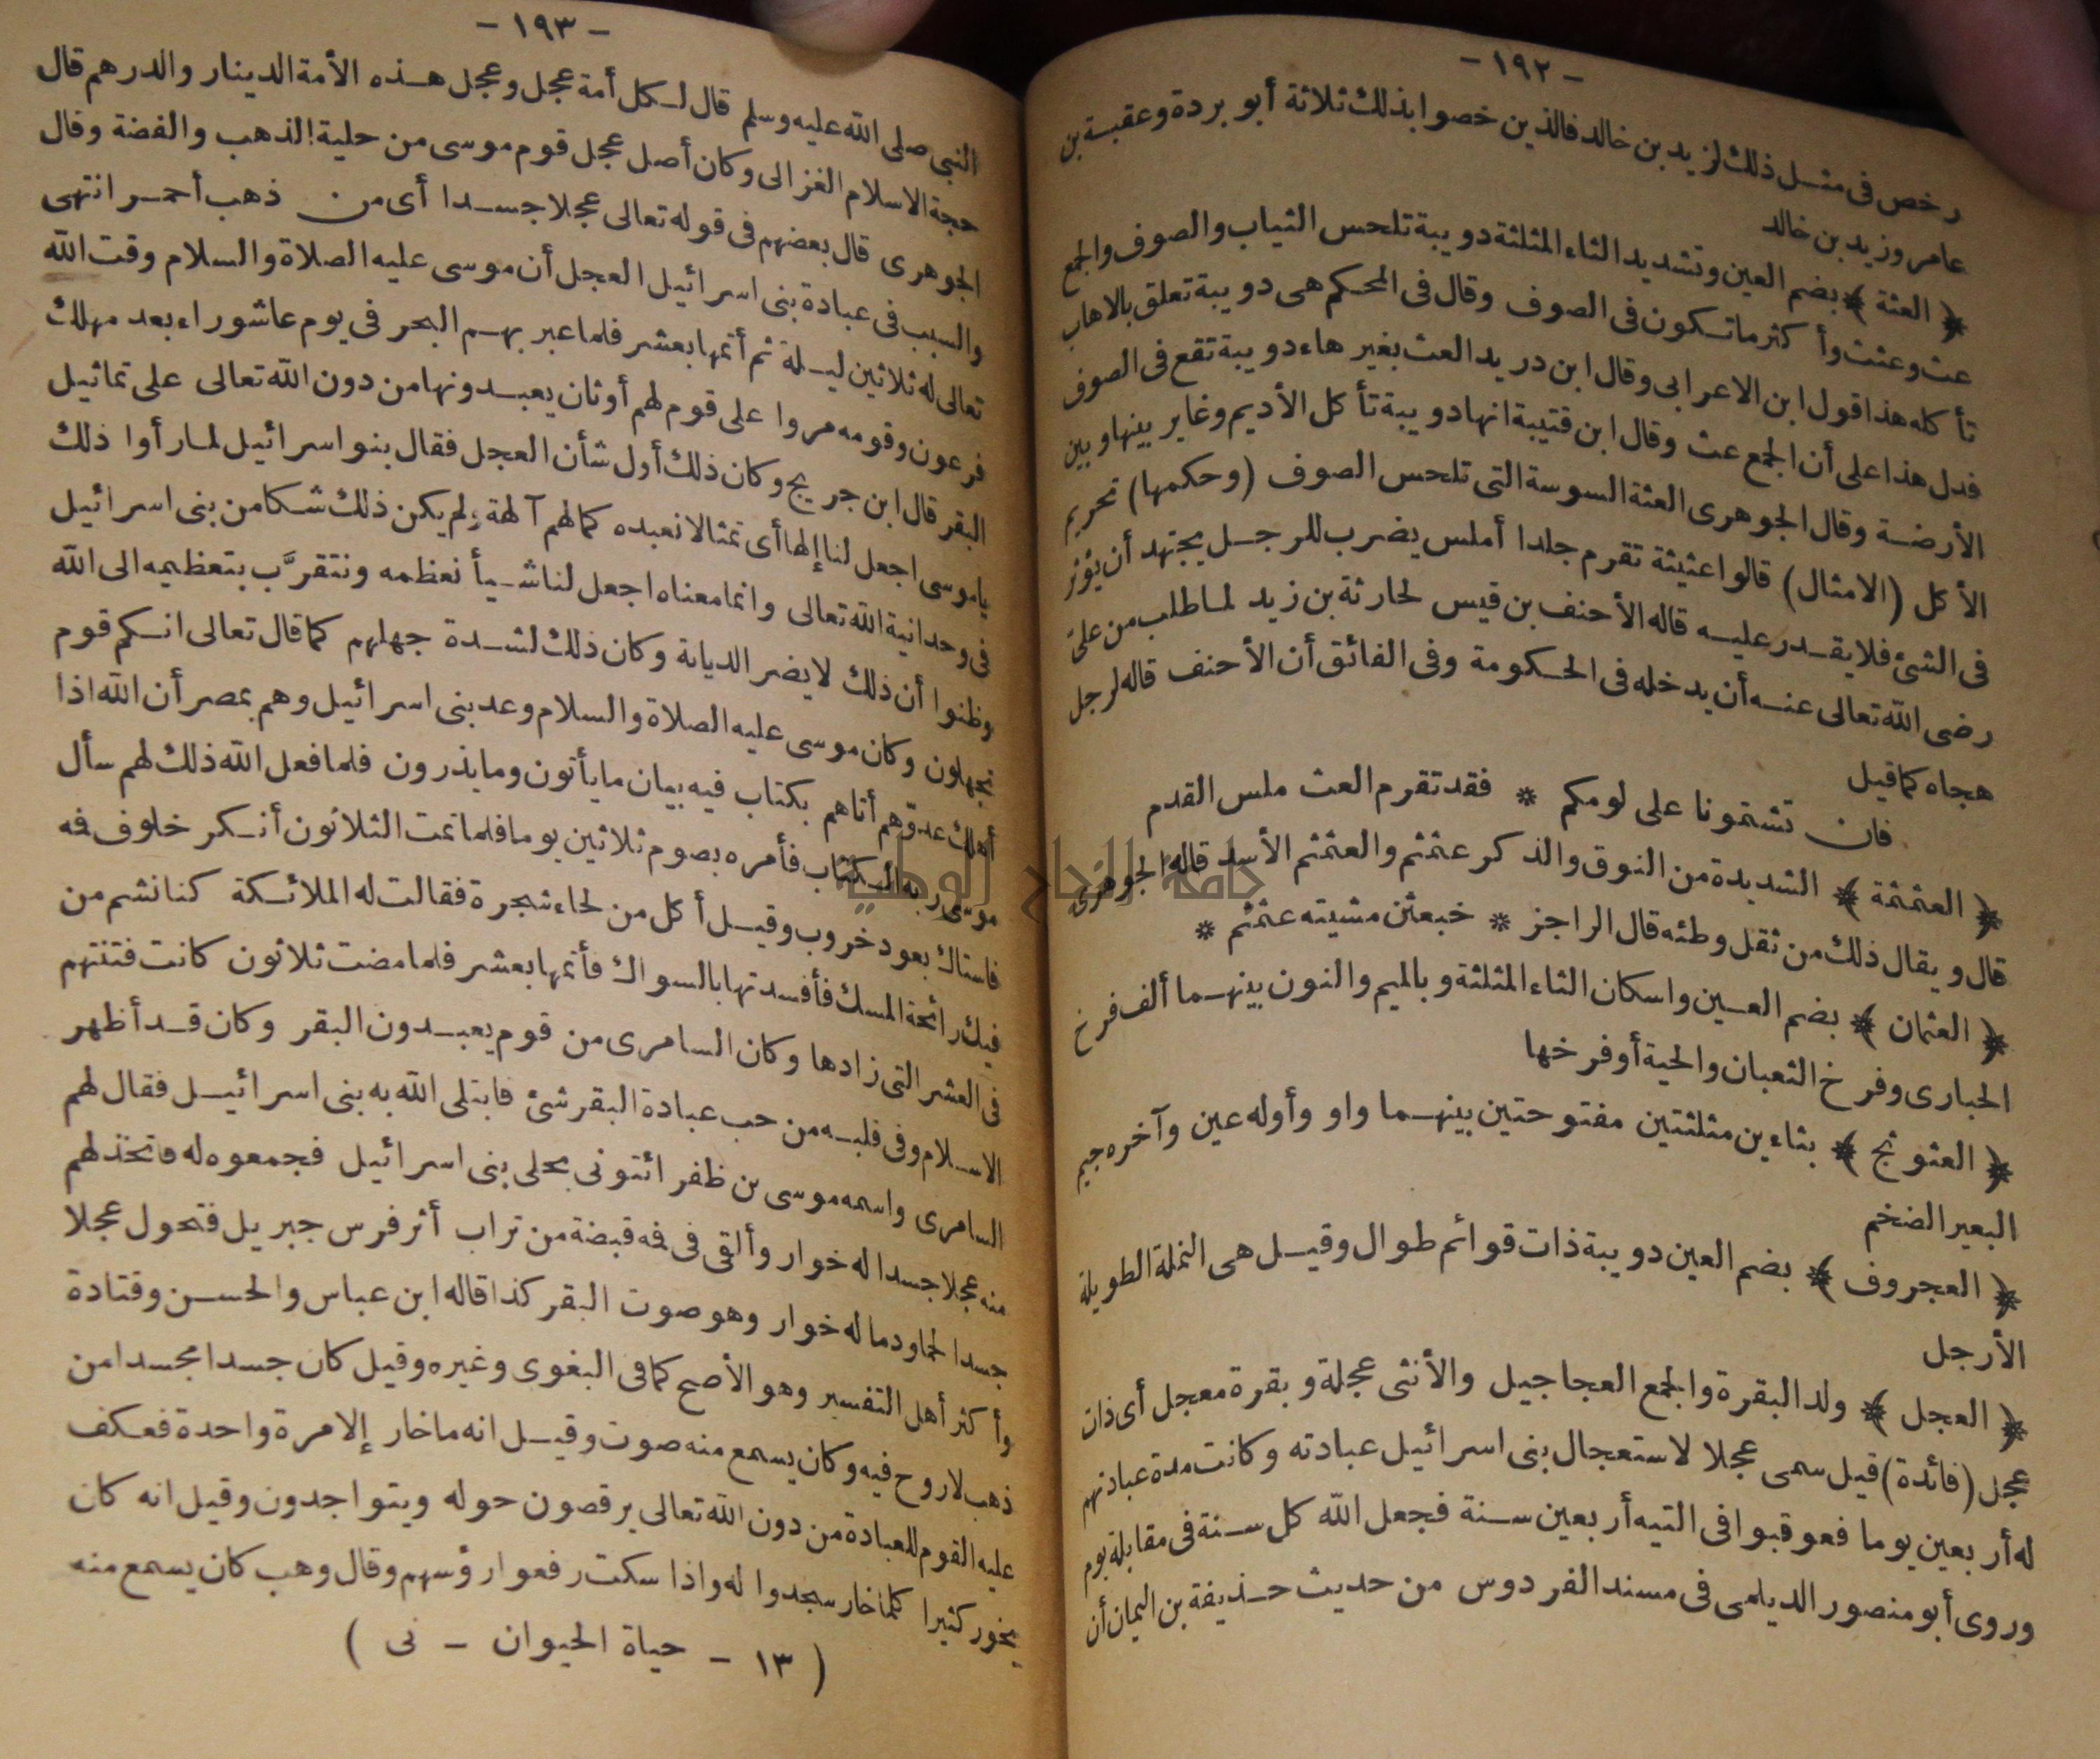 - ١٩٢ -
رخص فى مثل ذلك لزيد بن خالد فالذين خصوا بذلك ثلاثة أبو بردة وعقبة بن
عامر وزيد بن خالد
﴿ العثة ﴾ بضم العين وتشديد الثاء المثلثة دويبة تلحس الثياب والصوف والجمع
عث وعثث وأكثر ماتكون فى الصوف وقال فى المحكم هى دويبة تعلق بالاهاب
تأكله هذا قول ابن الاعرابى وقال ابن دريد العث بغير هاء دويبة تقع فى الصوف
فدل هذا على أن الجمع عث وقال ابن قتيبة انها دويبة تأكل الأديم وغاير بينها وبين
الأرضة وقال الجوهرى العثة السوسة التى تلحس الصوف (وحكمها) تحريم
الأكل (الامثال) قالوا عثيثة تقرم جلدا أملس يضرب للرجل يجتهد أن يؤثر
فى الشئ فلا يقدر عليه قاله الأحنف بن قيس لحارثة بن زيد لما طلب من على
رضى الله تعالى عنه أن يدخله فى الحكومة وفى الفائق أن الأحنف قاله لرجل
هجاه كما قيل
فان تشتمونا على لومكم * فقد تقرم العث ملس القدم
﴿ العثمثمة ﴾ الشديدة من النوق والذكر عثمثم والعثمثم الأسد قاله الجوهرى
قال ويقال ذلك من ثقل وطئه قال الراجز * خبعثن مشيته عثمثم *
﴿ العثمان ﴾ بضم العين واسكان الثاء المثلثة وبالميم والنون بينهما ألف فرخ
الحبارى وفرخ الثعبان والحية أو فرخها
﴿ العثوثج ﴾ بثاءين مثلثتين مفتوحتين بينهما واو وأوله عين وآخره جيم
البعير الضخم
﴿ العجروف ﴾ بضم العين دويبة ذات قوائم طوال وقيل هى النملة الطويلة
الأرجل
﴿ العجل ﴾ ولد البقرة والجمع العجاجيل والأنثى عجلة وبقرة معجل أى ذات
عجل (فائدة) قيل سمى عجلا لاستعجال بنى اسرائيل عبادته وكانت مدة عبادتهم
له أربعين يوما فعوقبوا فى التيه أربعين سنة فجعل الله كل سنة فى مقابلة يوم
وروى أبو منصور الديلمى فى مسند الفردوس من حديث حذيفة بن اليمان أن
- ١٩٣ -
النبى صلى الله عليه وسلم قال لكل أمة عجل وعجل هذه الأمة الدينار والدرهم قال
حجة الاسلام الغزالى وكان أصل عجل قوم موسى من حلية الذهب والفضة وقال
الجوهرى قال بعضهم فى قوله تعالى عجلا جسدا أى من ذهب أحمر انتهى
والسبب فى عبادة بنى اسرائيل العجل أن موسى عليه الصلاة والسلام وقت الله
تعالى له ثلاثين ليلة ثم أتمها بعشر فلما عبر بهم البحر فى يوم عاشوراء بعد مهلك
فرعون وقومه مروا على قوم لهم أوثان يعبدونها من دون الله تعالى على تماثيل
البقر قال ابن جريج وكان ذلك أول شأن العجل فقال بنو اسرائيل لما رأوا ذلك
ياموسى اجعل لنا إلها أى تمثالا نعبده كما لهم آلهة ولم يكن ذلك شكا من بنى اسرائيل
فى وحدانية الله تعالى وانما معناه اجعل لنا شيأ نعظمه ونتقرَّب بتعظيمه الى الله
وظنوا أن ذلك لا يضر الديانة وكان ذلك لشدة جهلهم كما قال تعالى انكم قوم
تجهلون وكان موسى عليه الصلاة والسلام وعد بنى اسرائيل وهم بمصر أن الله اذا
أهلك عدوّهم أتاهم بكتاب فيه بيان ما يأتون وما يذرون فلما فعل الله ذلك لهم سأل
موسى ربه الكتاب فأمره بصوم ثلاثين يوما فلما تمت الثلاثون أنكر خلوف فمه
فاستاك بعود خروب وقيل أكل من لحاء شجرة فقالت له الملائكة كنا نشم من
فيك رائحة المسك فأفسدتها بالسواك فأتمها بعشر فلما مضت ثلاثون كانت فتنتهم
فى العشر التى زادها وكان السامرى من قوم يعبدون البقر وكان قد أظهر
الاسلام وفى قلبه من حب عبادة البقر شئ فابتلى الله به بنى اسرائيل فقال لهم
السامرى واسمه موسى بن ظفر ائتونى بحلى بنى اسرائيل فجمعوه له فاتخذ لهم
منه عجلا جسدا له خوار وألقى فى فمه قبضة من تراب أثر فرس جبريل فتحول عجلا
جسدا لحما ودما له خوار وهو صوت البقر كذا قاله ابن عباس والحسن وقتادة
وأكثر أهل التفسير وهو الأصح كما فى البغوى وغيره وقيل كان جسدا مجسدا من
ذهب لا روح فيه وكان يسمع منه صوت وقيل انه ما خار إلا مرة واحدة فعكف
عليه القوم للعبادة من دون الله تعالى يرقصون حوله ويتواجدون وقيل انه كان
يخور كثيرا كلما خار سجدوا له واذا سكت رفعوا رؤسهم وقال وهب كان يسمع منه
( ١٣ - حياة الحيوان - نى )
جامعة النجاح الوطنية